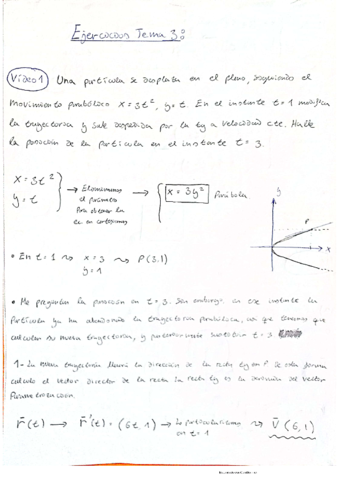 Ejercicios Tema 3:
Video 1 Una partícula se desplaza en el plano, siguiendo el
movimiento parabólico x = 3t², y = t. En el instante t = 1 modifica
la trayectoria y sale despedida por la tg a velocidad cte. Halle
la posición de la partícula en el instante t = 3.
x = 3t²
y = t
Eliminamos
el parámetro
para obtener la
ec en cartesianas
x = 3y²
Parábola
y
P
x
• En t = 1 x = 3
y = 1
P (3,1)
• Me preguntan la posición en t = 3. Sin embargo, en ese instante la
partícula ya ha abandonado la trayectoria parabólica, así que tenemos que
calcular su nueva trayectoria, y posteriormente sustituir t = 3
1- La nueva trayectoria llevará la dirección de la recta tg en P. De esta forma
calculo el vector director de la recta. La recta tg es la derivada del vector
r̄(t) → r̄'(t) = (6t, 1) → Lo particularizamos
en t = 1
v̄ (6,1)